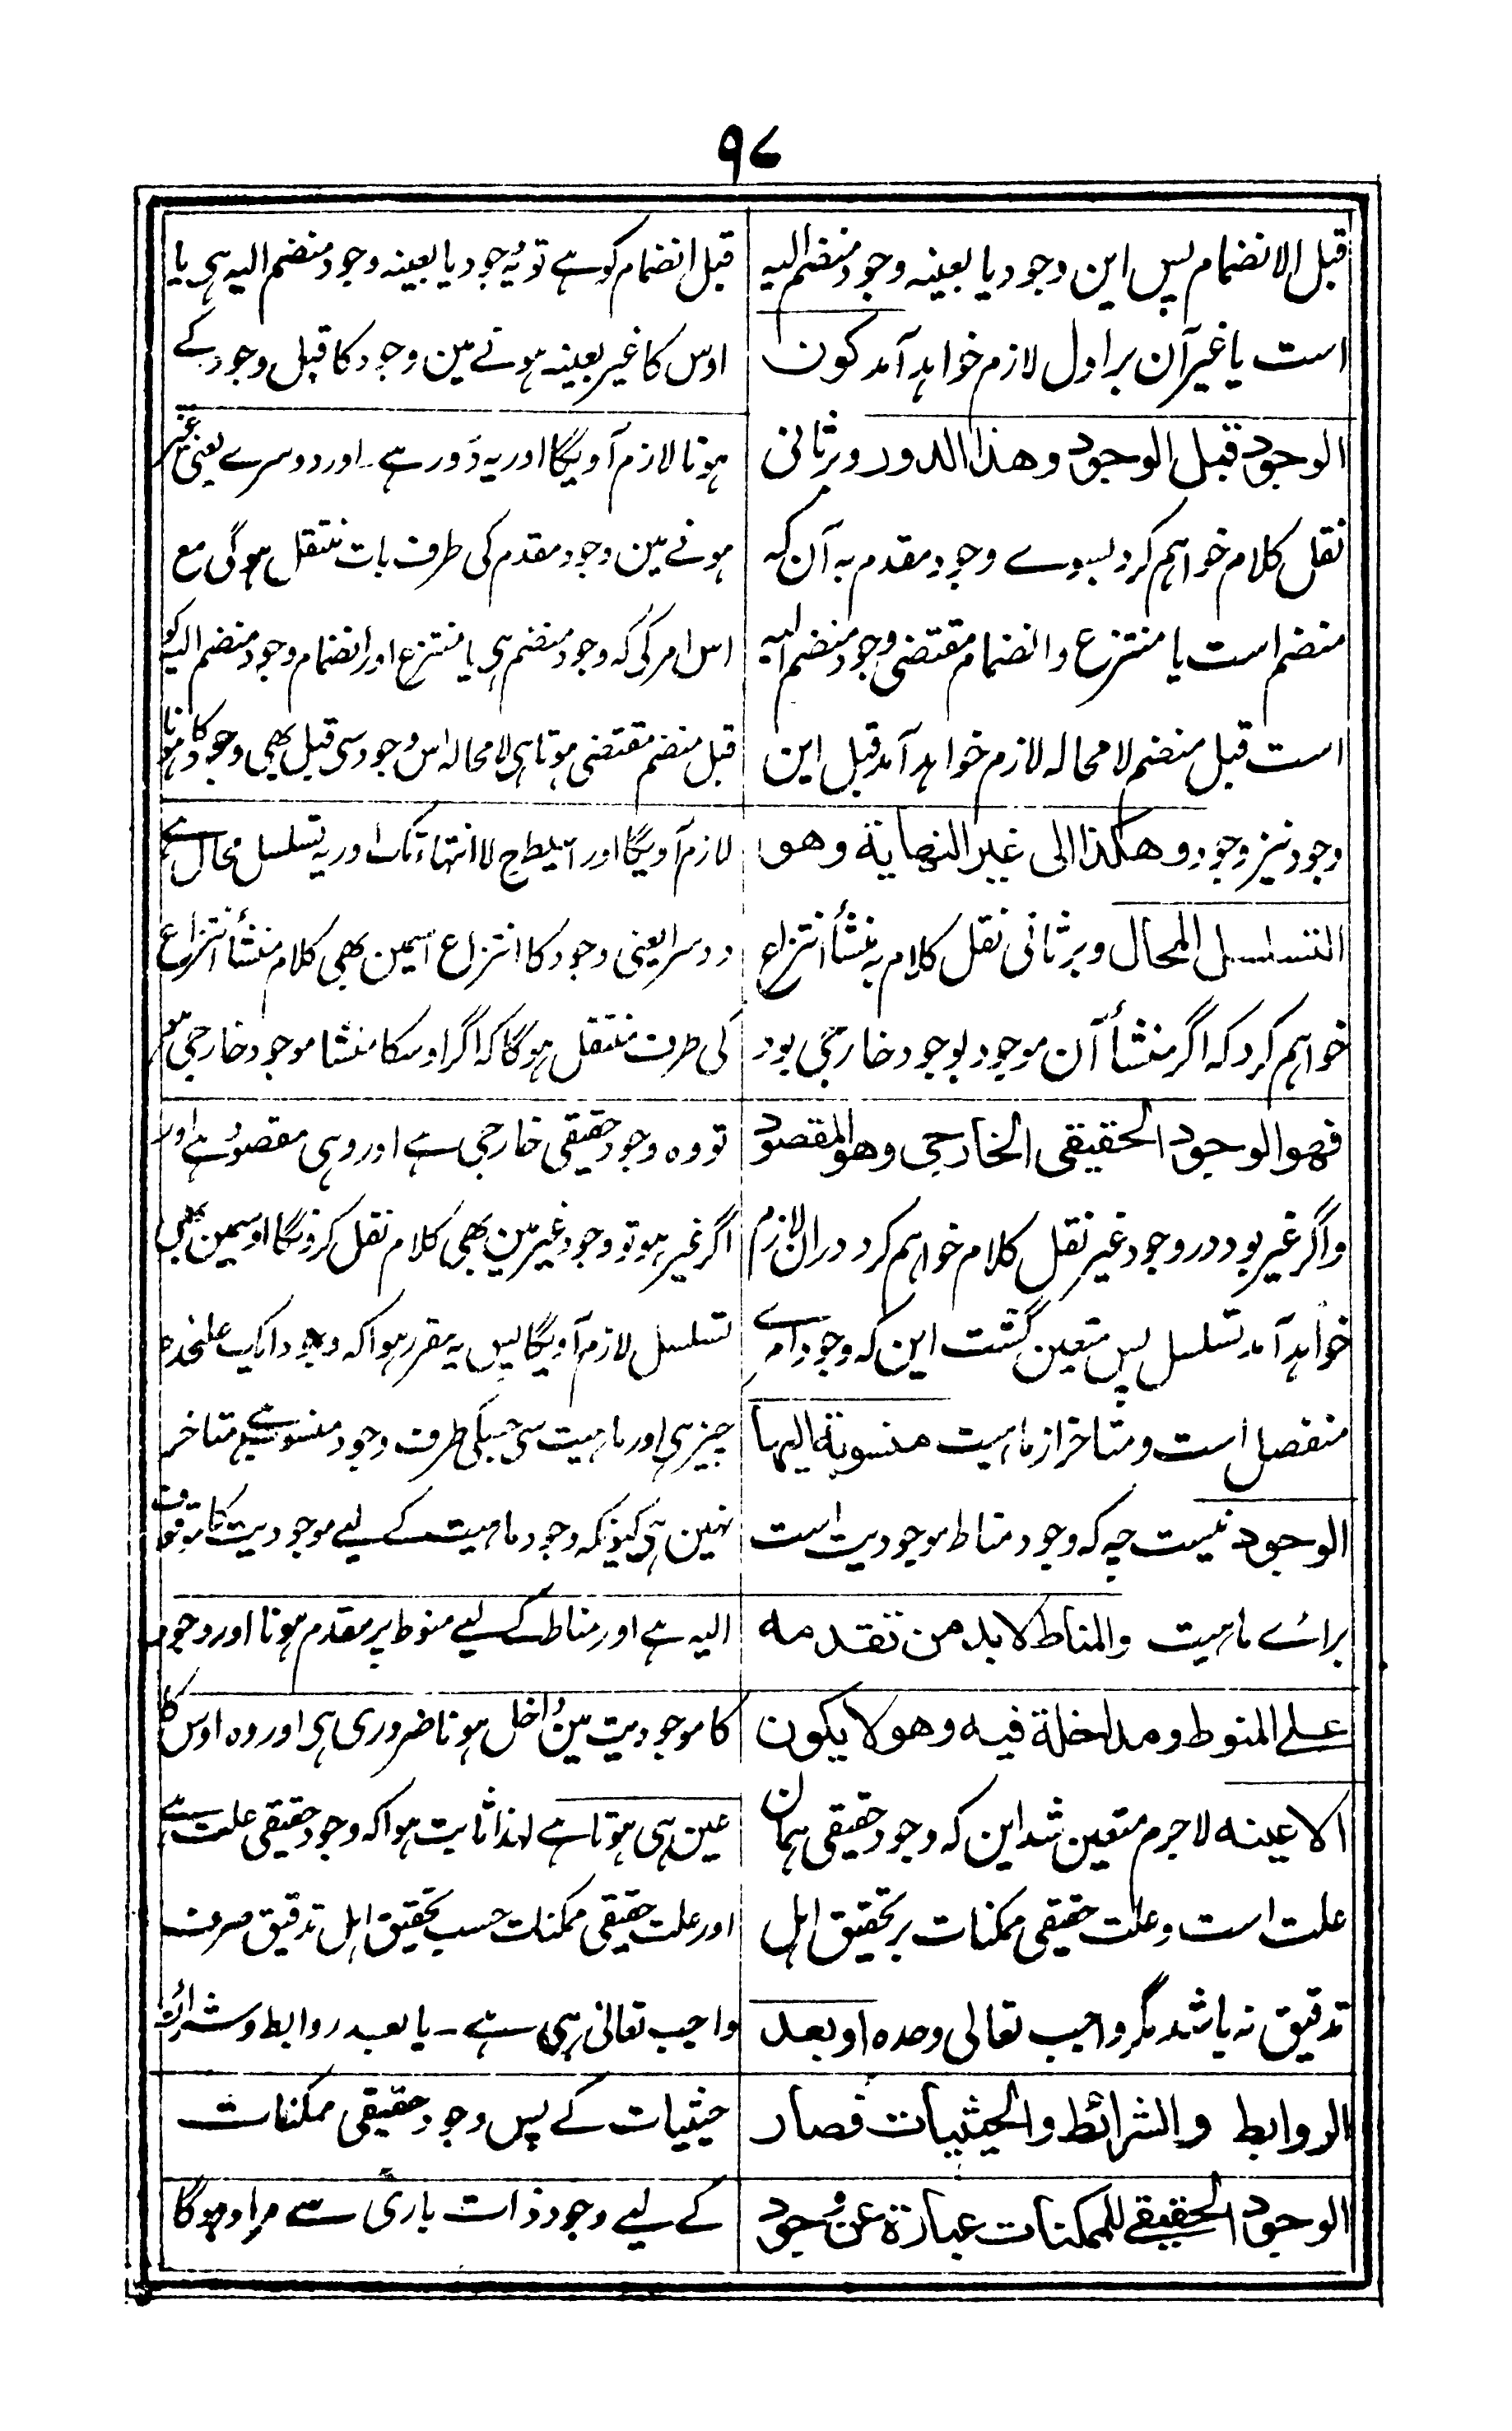 ۹۷
قبل الانضمام پس این وجود یا بعینه وجود منضم الیه
است یا غیر آن بر اول لازم خواهد آمد کون
الوجود قبل الوجود وهذا الدور و بر ثانی
نقل کلام خواهم کرد بسوے وجود مقدم به آن که
منضم است یا منتزع و انضمام مقتضی وجود منضم الیه
است قبل منضم لا محاله لازم خواهد آمد قبل این
وجود نیز وجود وهکذا الی غیر النهایة وهو
التسلسل المحال و بر ثانی نقل کلام به منشأ انتزاع
خواهم کرد که اگر منشأ آن موجود بوجود خارجی بود
فهو الوجود الحقیقی الخارجی وهو المقصود
و اگر غیر بود در وجود غیر نقل کلام خواهم کرد دران لازم
خواهد آمد تسلسل پس متعین گشت این که وجود امرے
منفصل است و متاخر از ماهیت منسوبة الیها
الوجود نیست چه که وجود مناط موجودیت است
برائے ماهیت والمناط لابد من تقدمه
علے المنوط ومداخلة فیه وهو لا یکون
الا عینه لا جرم متعین شد این که وجود حقیقی همان
علت است و علت حقیقی ممکنات بر تحقیق اهل
تدقیق نه باشد مگر واجب تعالی وحده او بعد
الروابط والشرائط والحیثیات فصار
الوجود الحقیقے للممکنات عبارة عن وجود
قبل انضمام کو ہے تو یہ وجود یا بعینہ وجود منضم الیہ ہی یا
اوس کا غیر بعینہ ہونے مین وجود کا قبل وجود کے
ہونا لازم آویگا اور یہ دَور ہے۔ اور دوسرے یعنی غیر
ہونے مین وجود مقدم کی طرف بات منتقل ہوگی مع
اس امر کی کہ وجود منضم ہی یا منتزع اور انضمام وجود منضم الیہ کو
قبل منضم مقتضی ہوتا ہی لا محالہ اس وجود سی قبل بھی وجود کا ہونا
لازم آویگا اور اسیطرح لا انتہاء تک اور یہ تسلسل محال ہے
دوسرا یعنی وجود کا انتزاع اسمین بھی کلام منشأ انتزاع
کی طرف منتقل ہوگا کہ اگر اوسکا منشا موجود خارجی ہو
تو وہ وجود حقیقی خارجی ہے اور وہی مقصود ہے اور
اگر غیر ہو تو وجود غیر مین بھی کلام نقل کرونگا اوسمین بھی
تسلسل لازم آویگا پس یہ مقرر ہوا کہ وجود ایک علٰحدہ
چیز ہی اور ماہیت سی جسکی طرف وجود منسوب ہے متاخر
نہین ہی کیونکہ وجود ماہیت کے لیے موجودیت کا موقوف
الیہ ہے اور مناط کے لیے منوط پر مقدم ہونا اور وجود
کا موجودیت مین داخل ہونا ضروری ہی اور وہ اوس کا
عین ہی ہوتا ہے لہذا ثابت ہوا کہ وجود حقیقی علت ہے
اور علت حقیقی ممکنات حسب تحقیق اہل تدقیق صرف
واجب تعالیٰ ہی ہے۔ یا بعد روابط و شرائط
حیثیات کے پس وجود حقیقی ممکنات
کے لیے وجود ذات باری سے مراد ہوگا